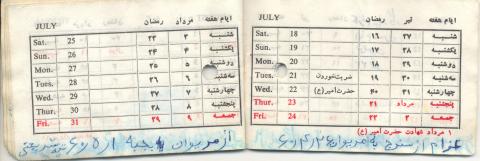 JULY رمضان مرداد ایام هفته
Sat. 25 ۲۳ ۳ شنبه
Sun. 26 ۲۴ ۴ یکشنبه
Mon. 27 ۲۵ ۵ دوشنبه
Tues. 28 ۲۶ ۶ سه‌شنبه
Wed. 29 ۲۷ ۷ چهارشنبه
Thur. 30 ۲۸ ۸ پنجشنبه
Fri. 31 ۲۹ ۹ جمعه
از مریوان به جبهه
JULY رمضان تیر ایام هفته
Sat. 18 ۱۶ ۲۷ شنبه
Sun. 19 ۱۷ ۲۸ یکشنبه
Mon. 20 ۱۸ ۲۹ دوشنبه
Tues. 21 ضربت‌خوردن ۱۹ ۳۰ سه‌شنبه
Wed. 22 حضرت امیر(ع) ۲۰ ۳۱ چهارشنبه
Thur. 23 ۲۱ مرداد پنجشنبه
Fri. 24 ۲۲ ۲ جمعه
۱ مرداد شهادت حضرت امیر (ع)
اعزام از سنندج به مریوان